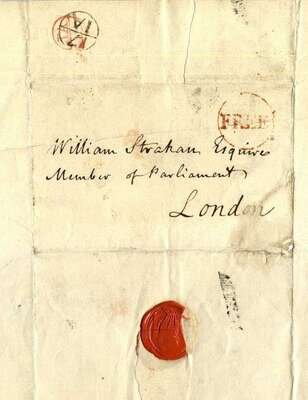 17
IA
FREE
William Strahan Esquire
Member of Parliament
London